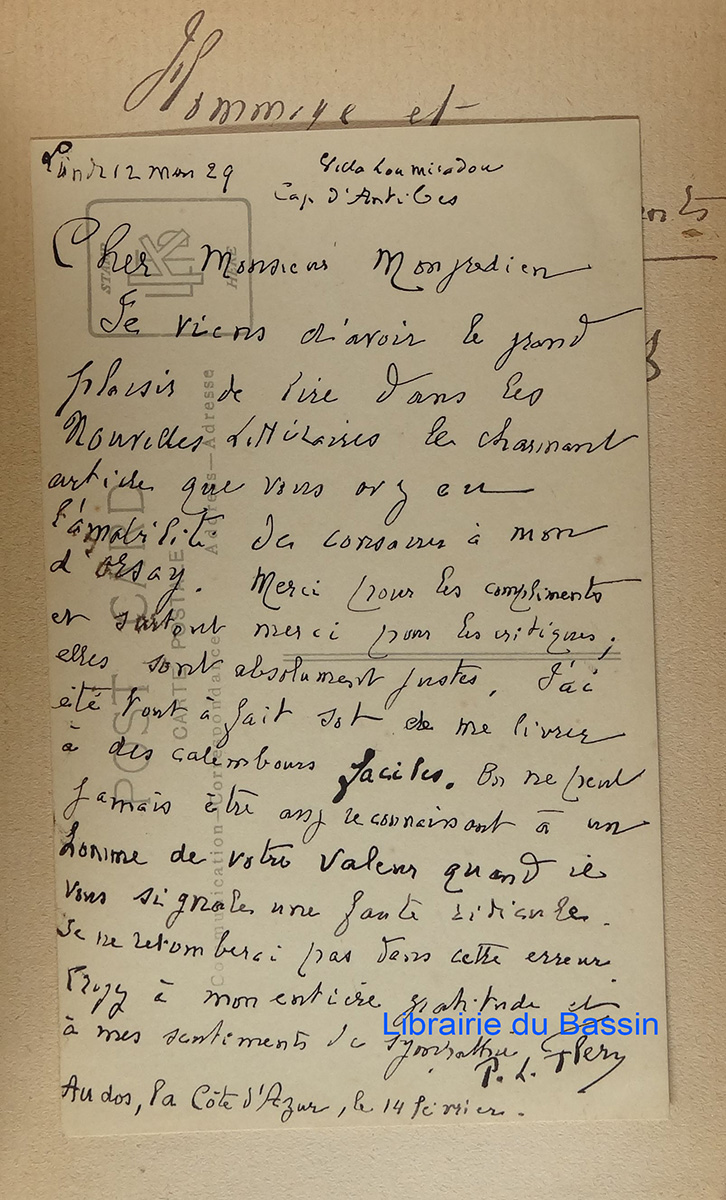 Hommage et
Lundi 12 mars 29
Villa Lou Miradou
Cap d'Antibes
Cher Monsieur Mongrédien
Je viens d'avoir le grand
plaisir de lire dans les
Nouvelles Littéraires le charmant
article que vous avez eu
l'amabilité de consacrer à mon
d'Orsay. Merci pour les compliments
et surtout merci pour les critiques,
elles sont absolument justes. J'ai
été tout à fait sot de me livrer
à des calembours faciles. On ne peut
jamais être assez reconnaissant à un
homme de votre valeur quand il
vous signale une faute ridicule.
Je ne retomberai pas dans cette erreur.
Croyez à mon entière gratitude et
à mes sentiments de sympathie
P. L. Flers
Au dos, la Côte d'Azur, le 14 février.
POST CARD
CARTE POSTALE
Communication—Correspondance
Address—Adresse
Librairie du Bassin